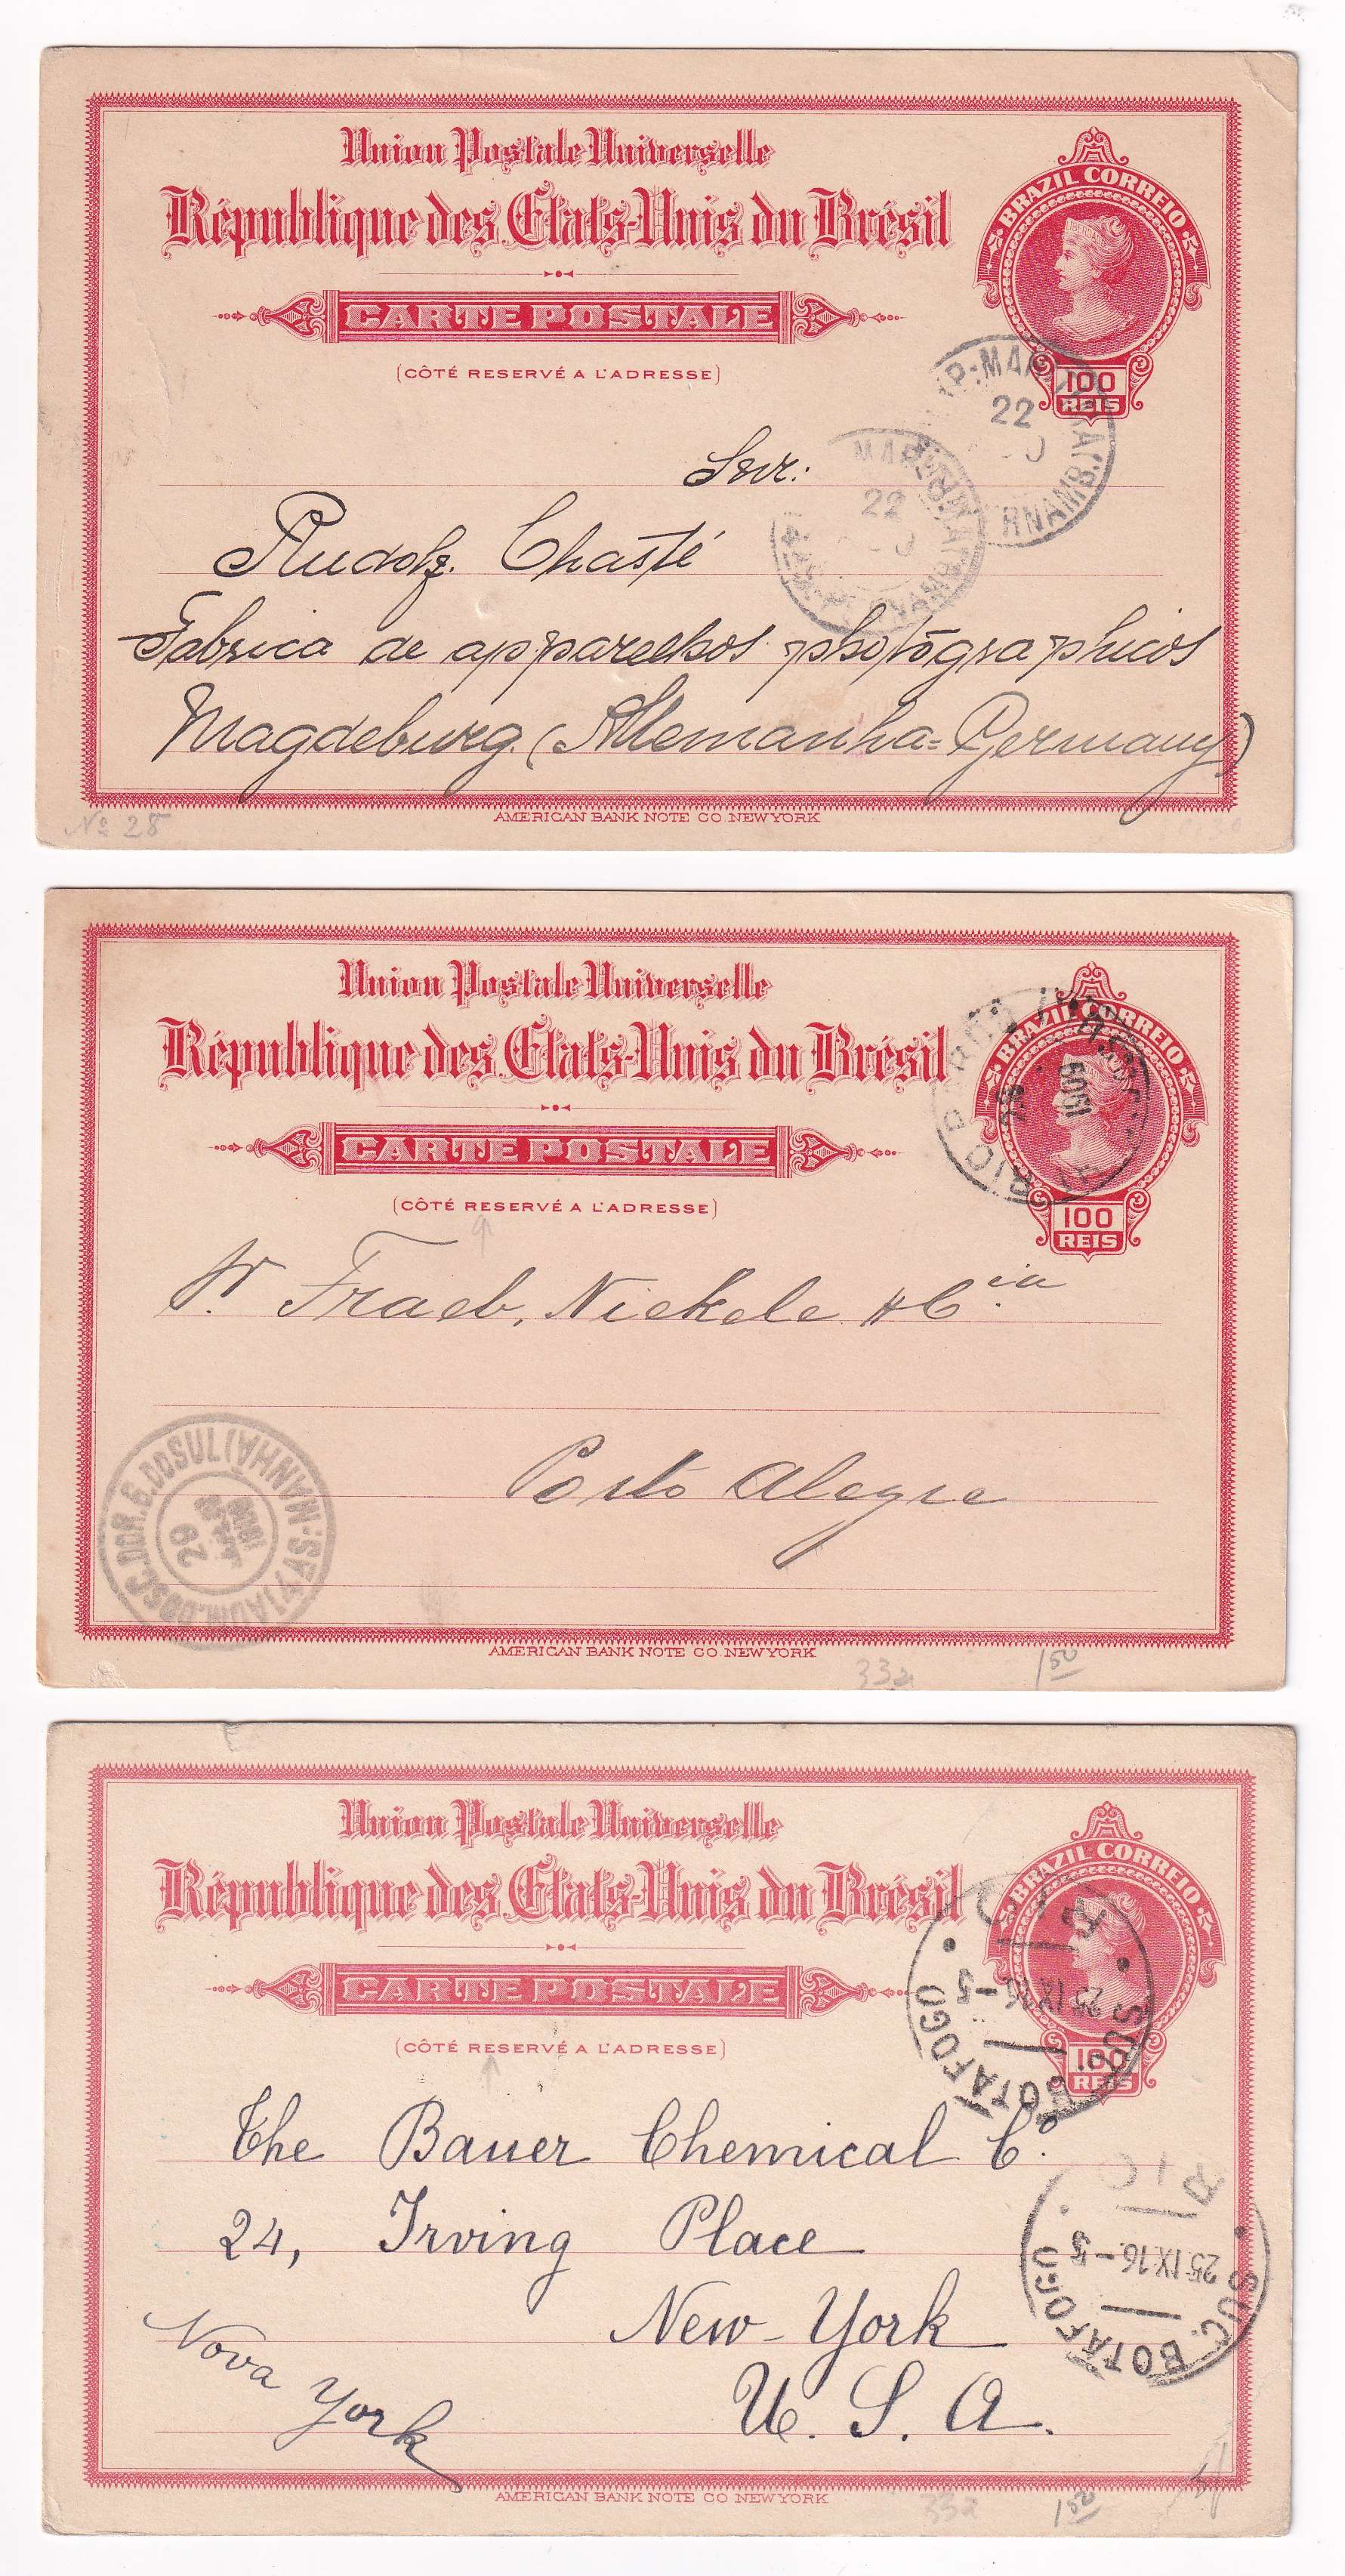 Union Postale Universelle
République des Etats-Unis du Brésil
BRAZIL CORREIO
CARTE POSTALE
(CÔTÉ RESERVÉ A L'ADRESSE)
100
REIS
22
22
Snr:
Rudolf. Chasté
Fabrica de apparelhos photographicos
Magdeburg. (Allemanha = Germany)
AMERICAN BANK NOTE CO. NEW YORK
Nº 28
Union Postale Universelle
République des Etats-Unis du Brésil
BRAZIL CORREIO
CARTE POSTALE
(CÔTÉ RESERVÉ A L'ADRESSE)
1909
100
REIS
Fraeb, Nickele & C.ia
Porto Alegre
ADM. DOS C. DO R. G. DO SUL (MANHÃ)
29
AMERICAN BANK NOTE CO. NEW YORK
33a
1 50
Union Postale Universelle
République des Etats-Unis du Brésil
BRAZIL CORREIO
CARTE POSTALE
(CÔTÉ RESERVÉ A L'ADRESSE)
100
REIS
RIO
25.IX.16.-5
SUC. BOTAFOGO
The Bauer Chemical Co.
24, Irving Place
New-York
U. S. A.
Nova York
RIO
25.IX.16.-5
SUC. BOTAFOGO
AMERICAN BANK NOTE CO. NEW YORK
33a
1 50